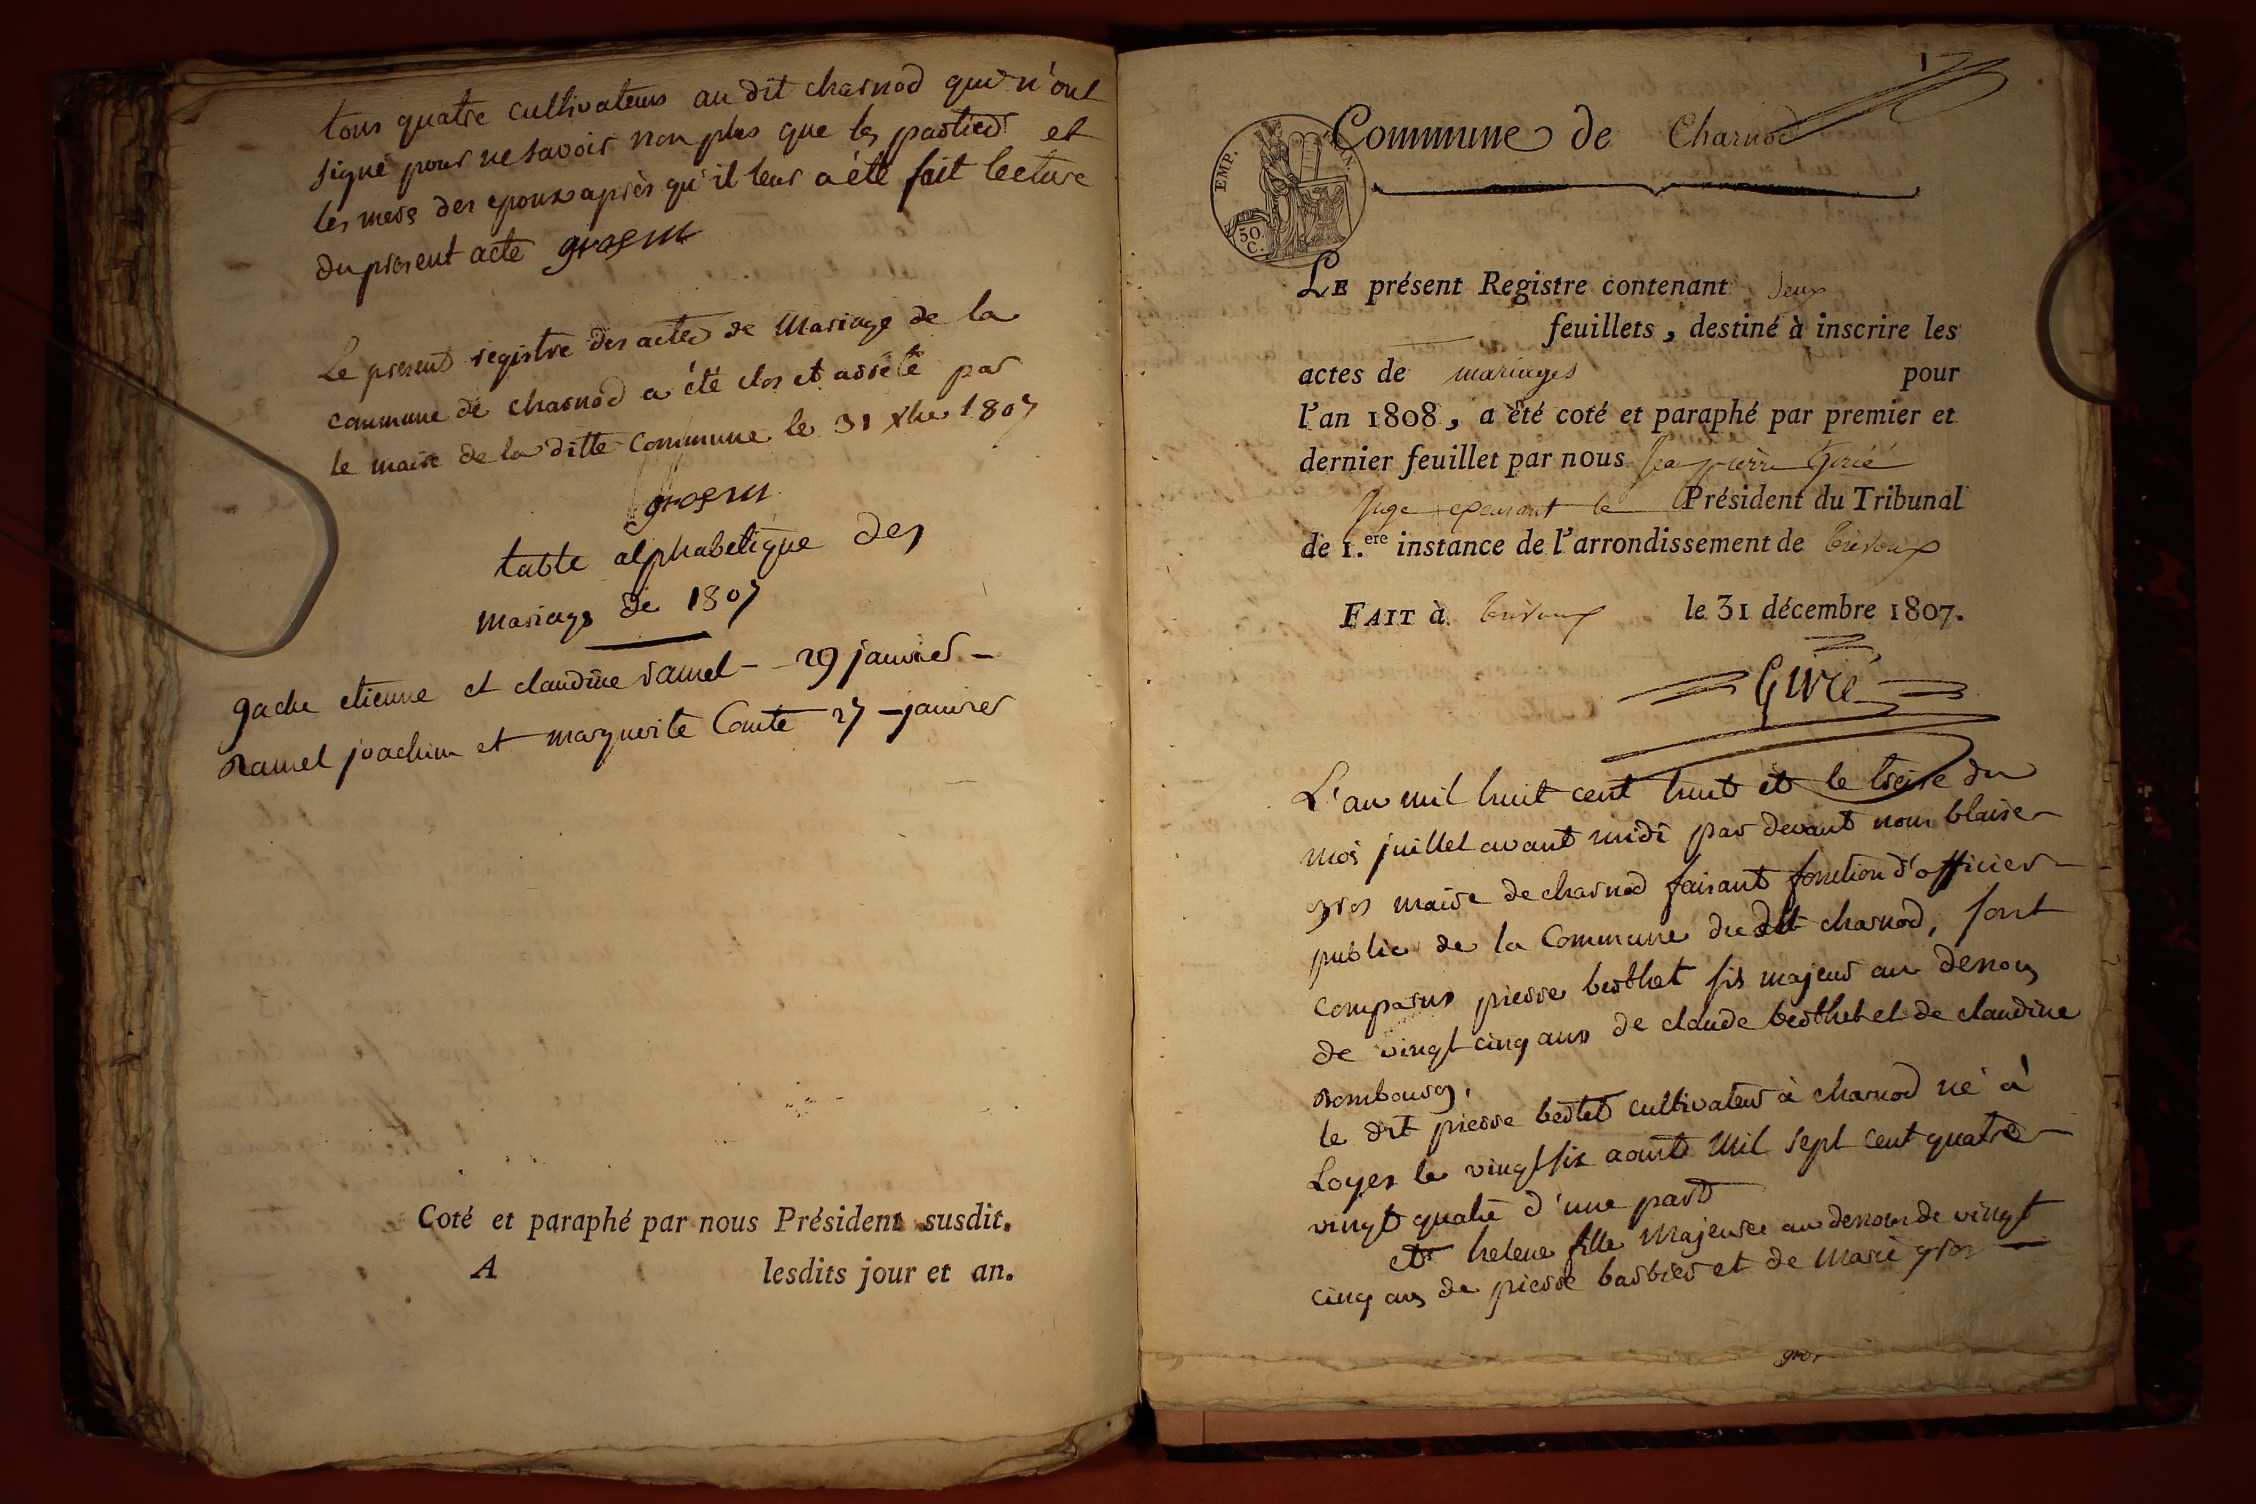 tous quatre cultivateurs au dit charnod qui n'ont
signé pour ne savoir non plus que les parties et
les mers des epoux après qu'il leur a été fait lecture
du present acte gros m
Le present registre des actes de Mariage de la
commune de charnod a été clos et arrêté par
le maire de la ditte commune le 31 xbre 1807
gros m
table alphabetique des
mariages de 1807
gache etienne et claudine ramel - 29 janvier -
Ramel joachim et marguerite Comte 27 - janvier
Coté et paraphé par nous Président susdit.
A lesdits jour et an.
1
Commune de Charnod
EMP.
50
C.
LE présent Registre contenant deux
feuillets, destiné à inscrire les
actes de mariages pour
l'an 1808, a été coté et paraphé par premier et
dernier feuillet par nous Jean pierre Girié
Juge exerçant le Président du Tribunal
de 1.ere instance de l'arrondissement de trévoux
FAIT à trévoux le 31 décembre 1807.
Girié
L'an mil huit cent huit et le treize du
mois juillet avant midi par devant nous blaise
gros maire de charnod faisant fonction d'officier
public de la Commune du dit charnod, sont
comparus pierre berthet fils majeur au dessous
de vingt cinq ans de claude berthet et de claudine
Rombourg,
le dit pierre bertet cultivateur à charnod né à
Loyes le vingt six aoust mil sept cent quatre
vingt quatre d'une part
et helene fille Majeure au dessous de vingt
cinq ans de pierre barbier et de Marie gros
gros